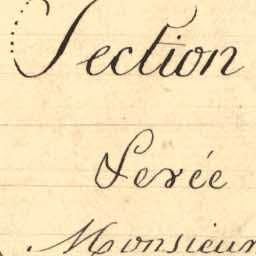 Section
Levée
Monsieur